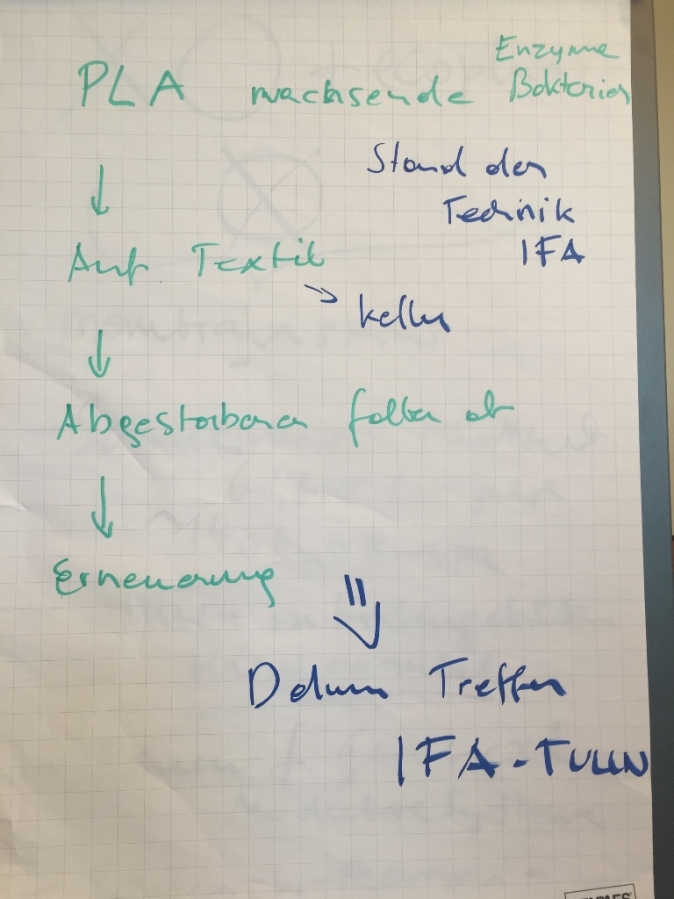 Enzyme
PLA wachsende Bakterien
Stand der
Technik
IFA
Auf Textil
Keller
Abgestorbenen fallen ab
Erneuerung
Datum Treffen
IFA-TULLN